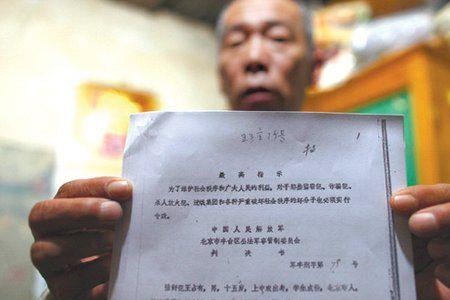 最高指示
为了维护社会秩序和广大人民的利益，对于那些盗窃犯、诈骗犯、
杀人放火犯、流氓集团和各种严重破坏社会秩序的坏分子也必须实行
专政。
中国人民解放军
北京市丰台区公法军事管制委员会
判决书
军丰刑字第 号
男，十五岁，上中农出身，学生成份，北京市人，